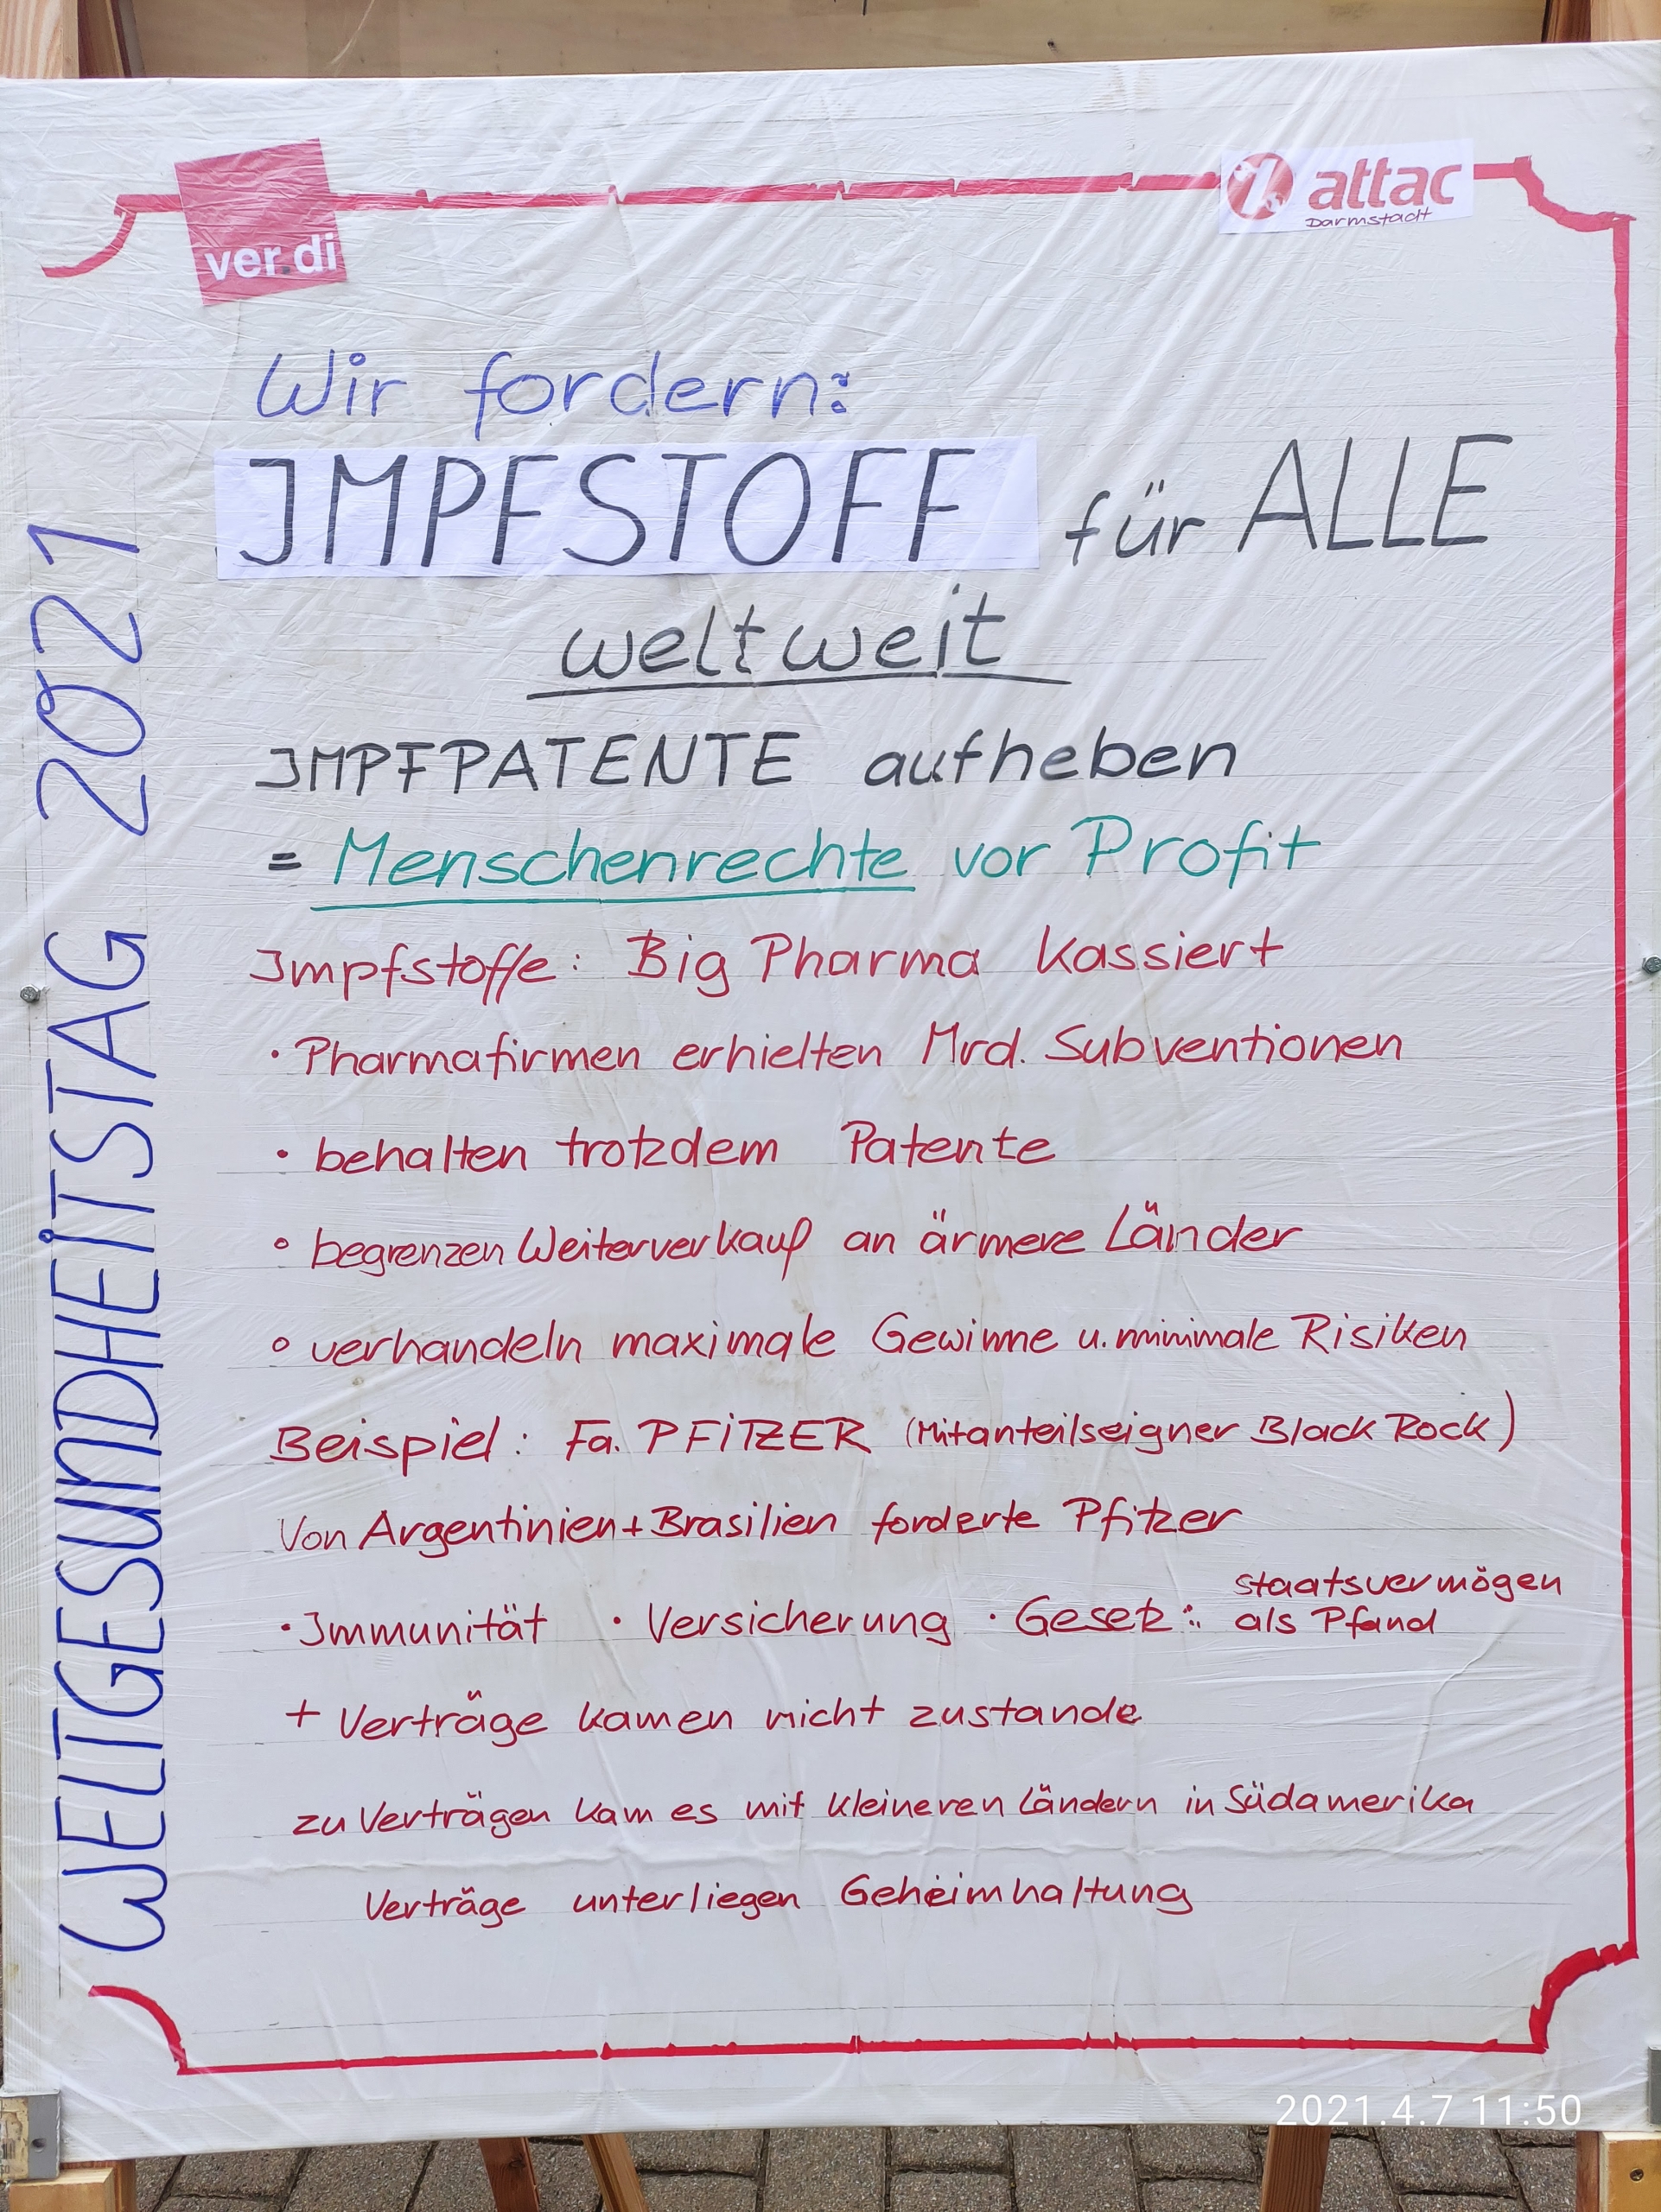 ver.di
attac
Darmstadt
WELTGESUNDHEITSTAG 2021
Wir fordern:
IMPFSTOFF für ALLE
weltweit
IMPFPATENTE aufheben
= Menschenrechte vor Profit
Impfstoffe: Big Pharma kassiert
• Pharmafirmen erhielten Mrd. Subventionen
• behalten trotzdem Patente
• begrenzen Weiterverkauf an ärmere Länder
• verhandeln maximale Gewinne u. minimale Risiken
Beispiel: Fa. PFITZER (Mitanteilseigner Black Rock)
Von Argentinien + Brasilien forderte Pfitzer
• Immunität • Versicherung • Gesetz: staatsvermögen
als Pfand
+ Verträge kamen nicht zustande
zu Verträgen kam es mit kleineren Ländern in Südamerika
Verträge unterliegen Geheimhaltung
2021.4.7 11:50